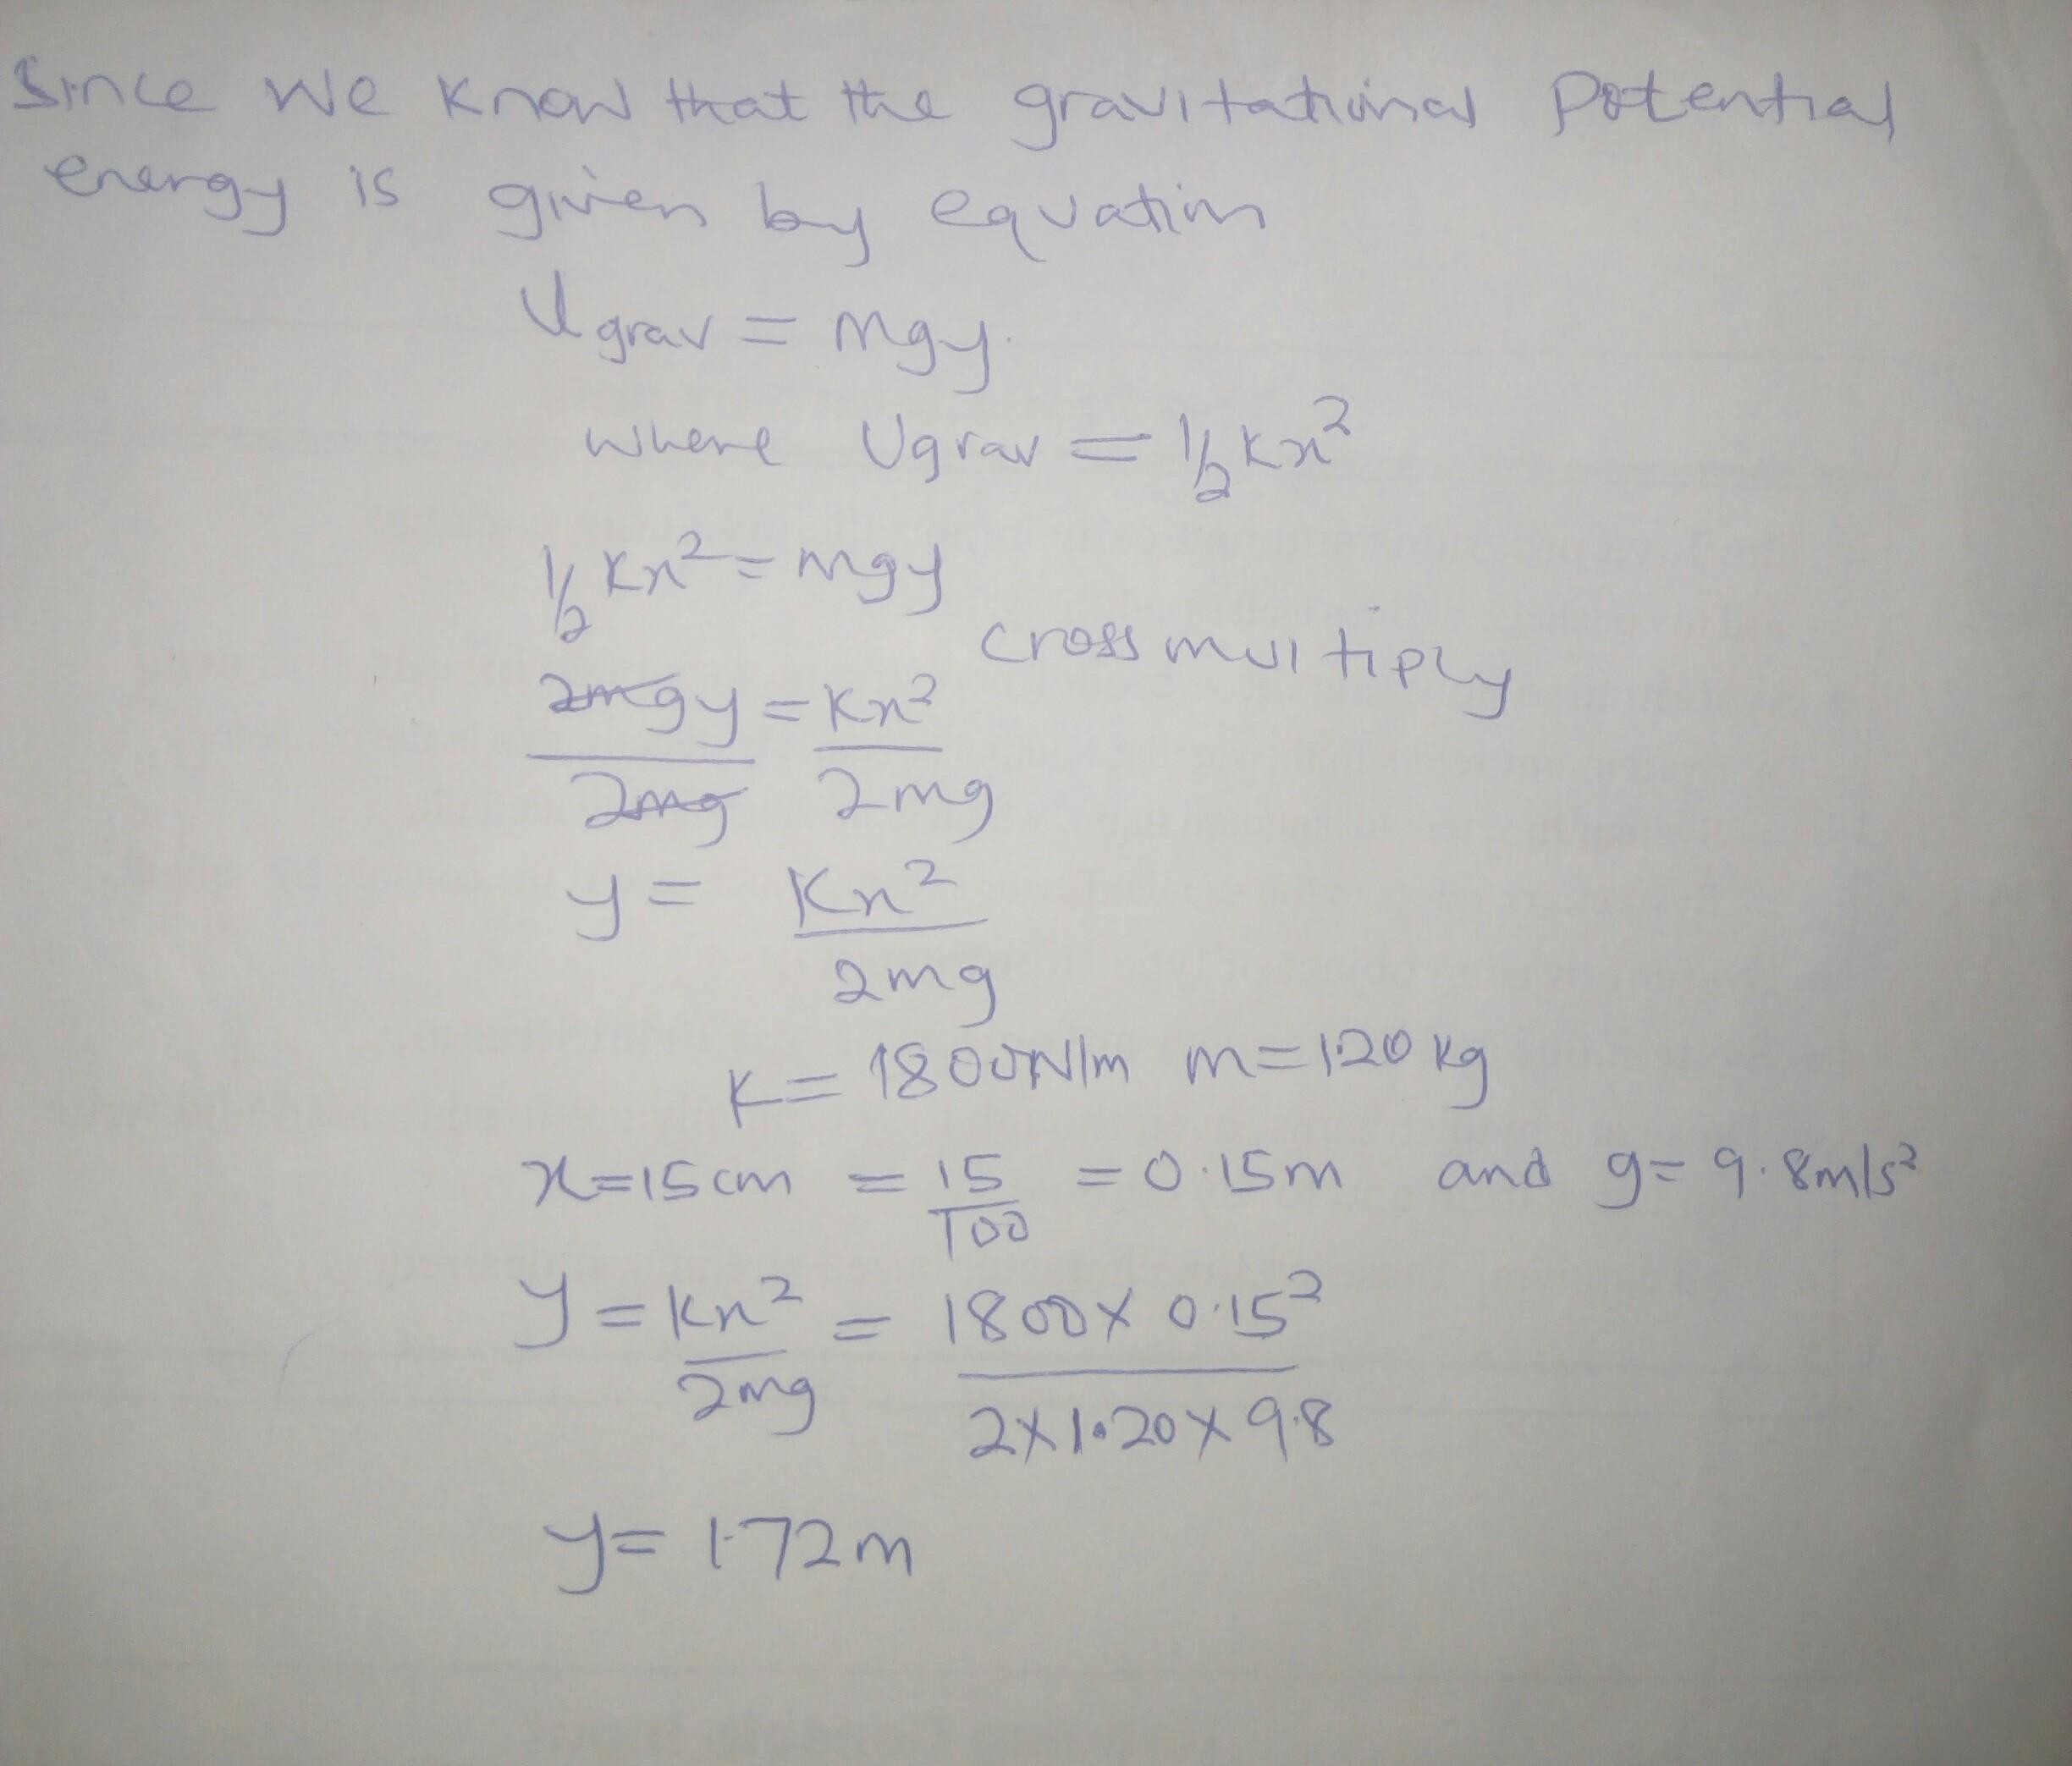 Since we know that the gravitational potential
energy is given by equation
Ugrav = mgy.
where Ugrav = 1/2 Kx²
1/2 Kx² = mgy
cross multiply
2mgy = Kx²
2mg 2mg
y = Kx²
2mg
K = 1800N/m m = 1.20 kg
x = 15 cm = 15 = 0.15m and g = 9.8m/s²
100
y = Kx² = 1800 x 0.15²
2mg 2 x 1.20 x 9.8
y = 1.72m